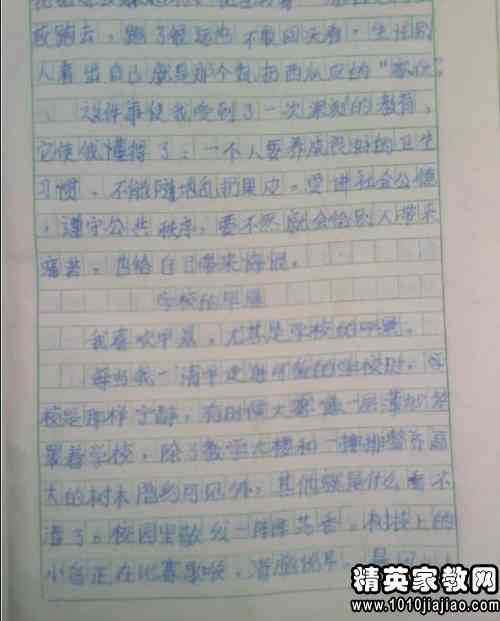 故跑去,跑了很远也不敢回头看,生怕别
人看出自己就是那个乱扔西瓜皮的“家伙”。
这件事使我受到了一次深刻的教育,
它使我懂得了:一个人要养成良好的卫生
习惯,不能随地乱扔果皮。要讲社会公德
,遵守公共秩序,要不然就会给别人带来
痛苦,也给自己带来悔恨。
学校的早晨
我喜欢早晨,尤其是学校的早晨。
每当我一清早走进可爱的学校时,学
校是那样宁静,有时候大雾像一层薄纱笼
罩着学校,除了教学大楼和一排排整齐高
大的树木隐约可见外,其他就是什么看不
清了。校园里散发一阵阵花香。树枝上的
小鸟正在比赛歌喉,清脆悦耳。
精英家教网
www.1010jiajiao.com